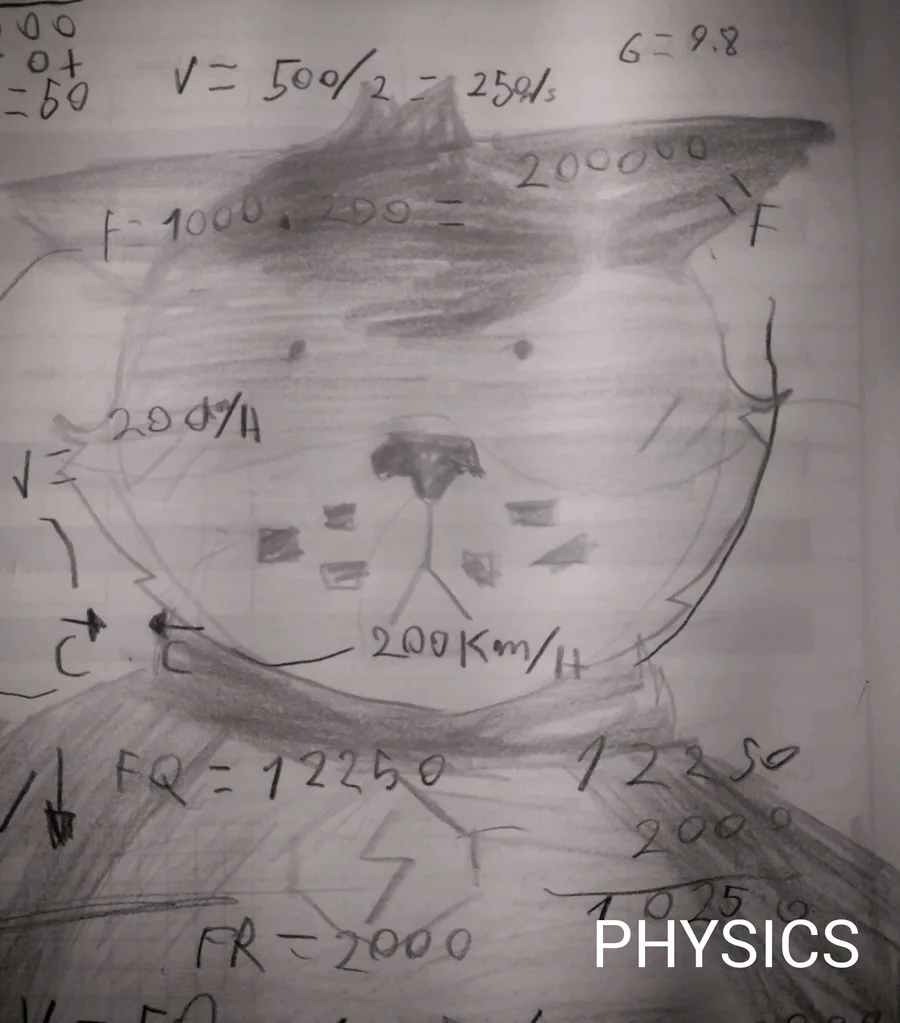 00
0+
=50
V = 500/2 = 250/s
G = 9.8
F = 1000 . 200 = 200000
= F
200 /H
V =
C C
200Km/H
FQ = 12250
12250
2000
10250
FR = 2000
PHYSICS